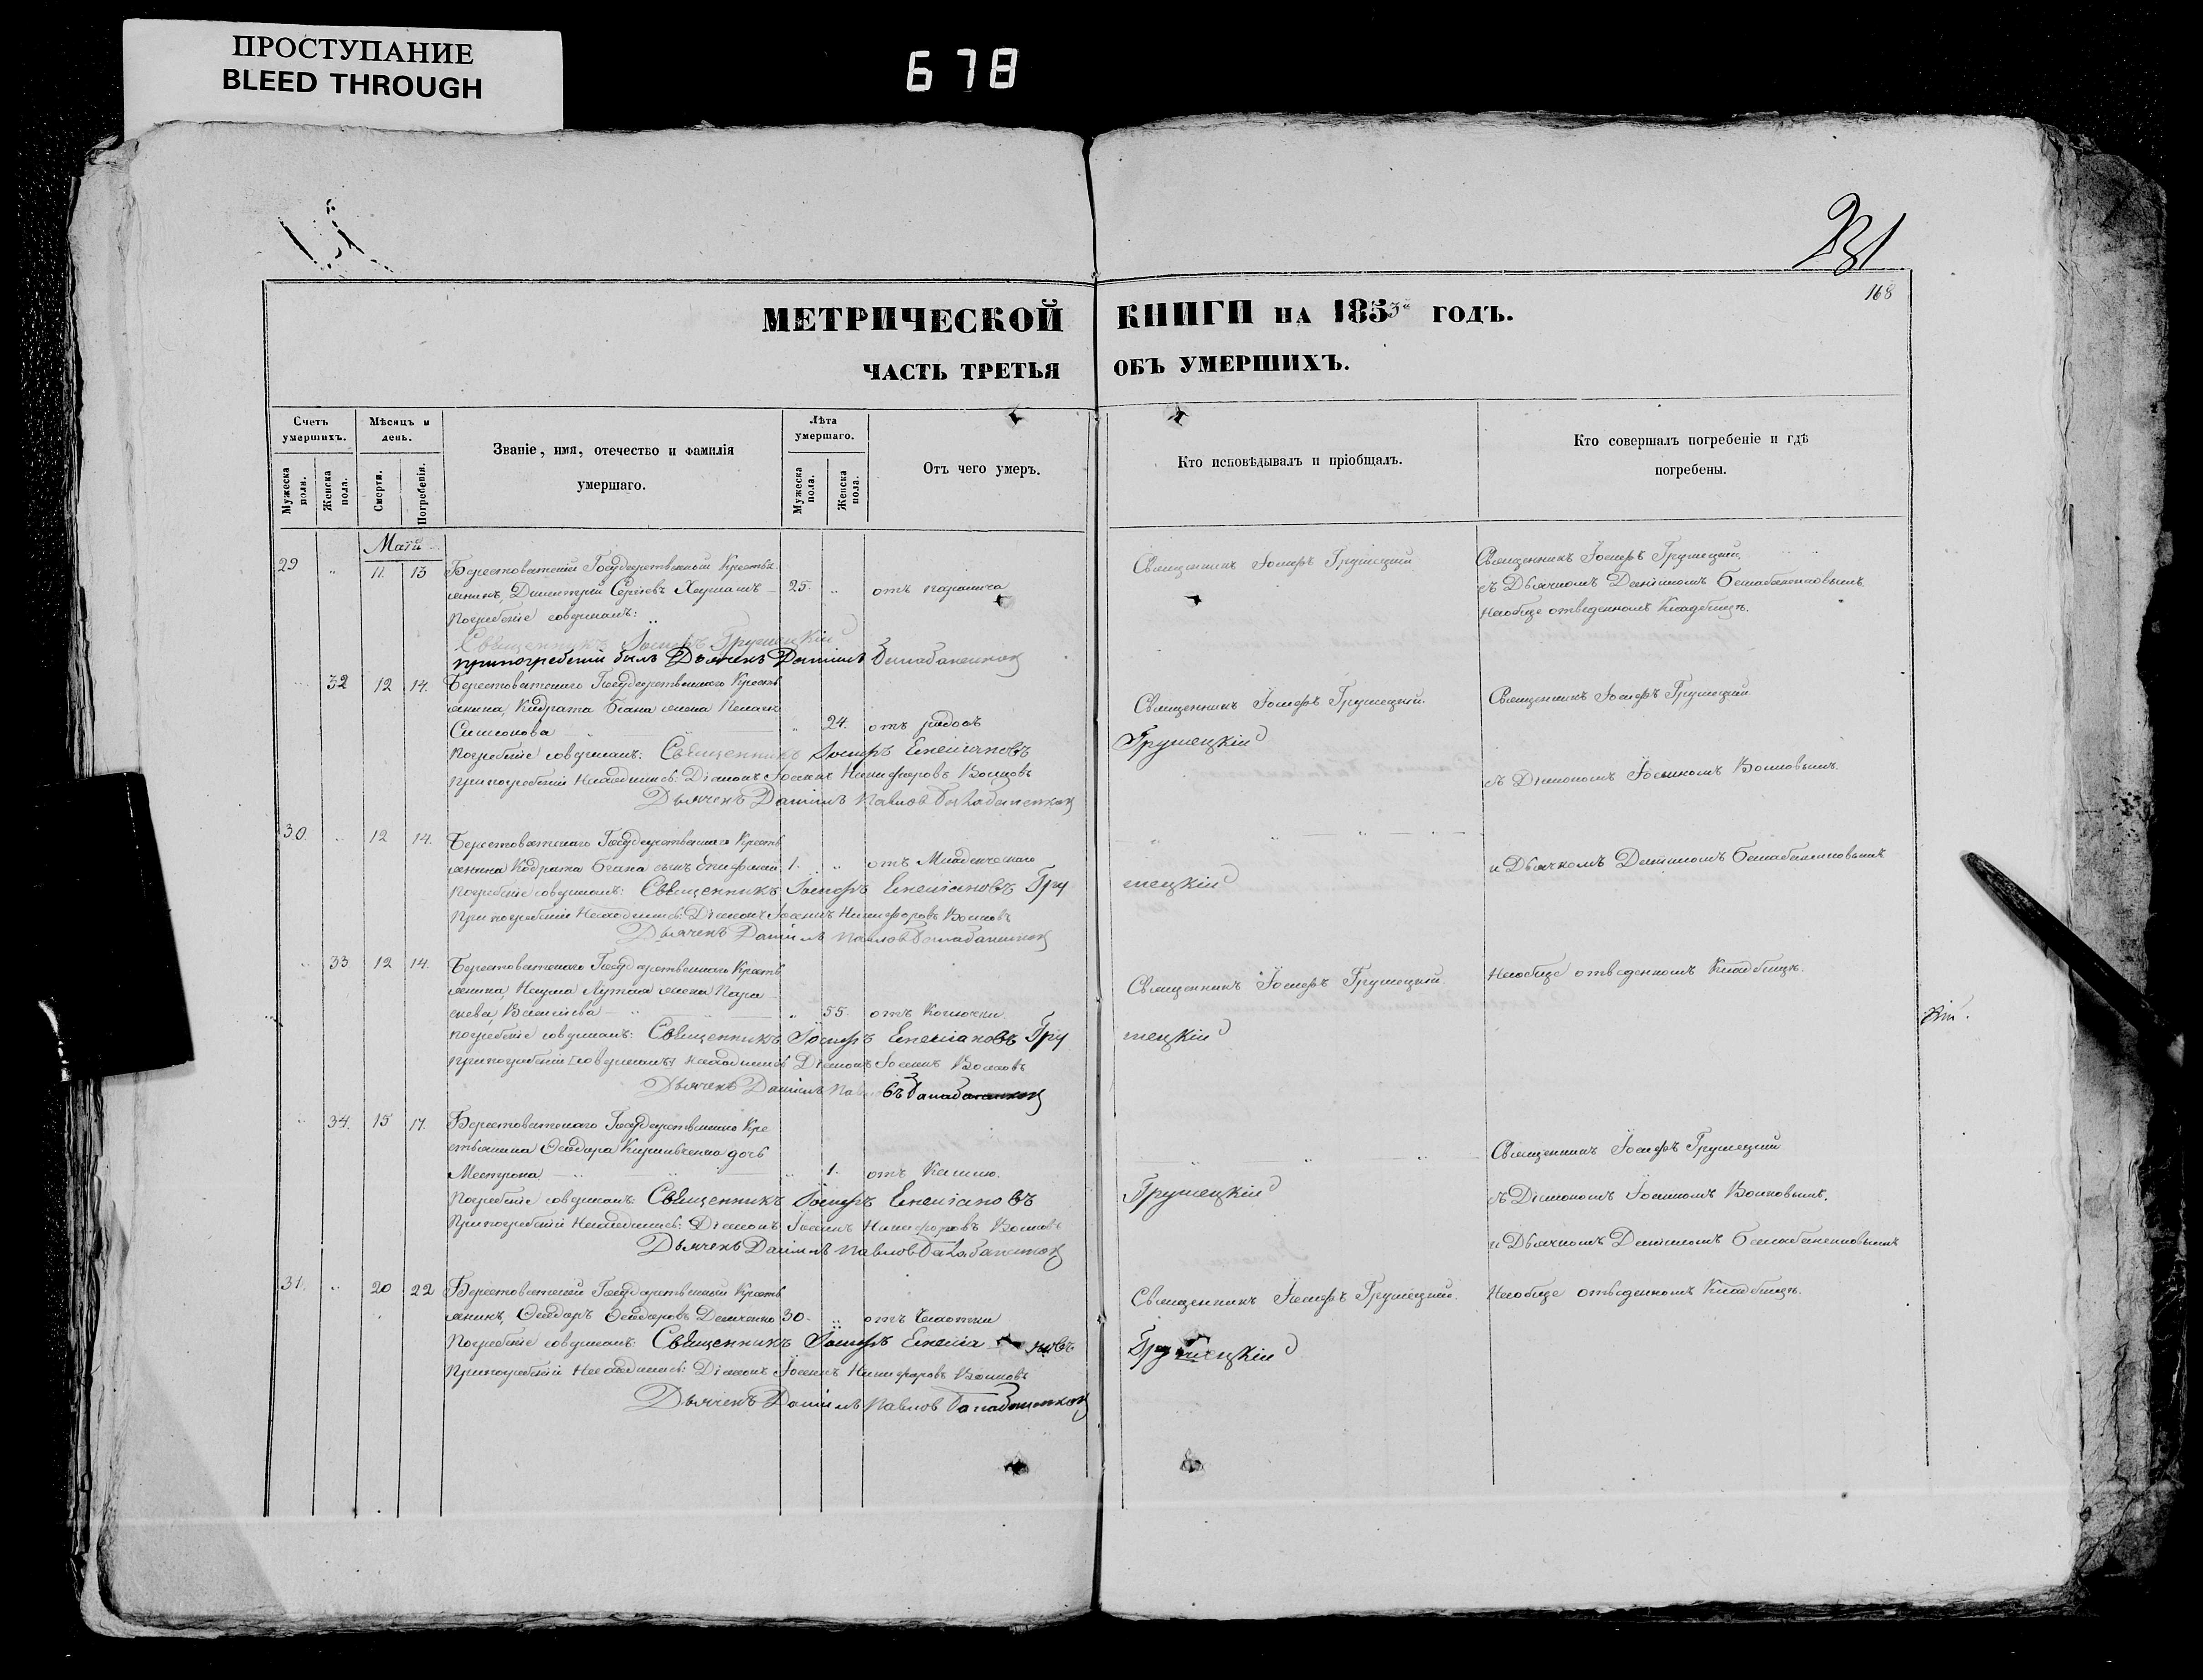 ПРОСТУПАНИЕ
BLEED THROUGH
678
231
168
МЕТРИЧЕСКОЙ КНИГИ НА 1853й ГОДЪ.
ЧАСТЬ ТРЕТЬЯ ОБЪ УМЕРШИХЪ.
Счетъ умершихъ.
Мужеска пола.
Женска пола.
Мѣсяцъ и день.
Смерти.
Погребенія.
Званіе, имя, отечество и фамилія умершаго.
Лѣта умершаго.
Мужеска пола.
Женска пола.
Отъ чего умеръ.
Кто исповѣдывалъ и пріобщалъ.
Кто совершалъ погребеніе и гдѣ погребены.
Маій
29 " 11. 13 Берестоватскій Государственный Крестья Священникъ Іосифъ Грушецкій Священникъ Іосифъ Грушецкій
янинъ, Димитрій Сергѣевъ 25. " отъ паралича съ Дьячкомъ Даніиломъ
Погребеніе совершалъ: На общe отведенномъ Кладбищѣ.
Священникъ Іосифъ Грушецкій
при погребеніи былъ Дьячекъ Даніилъ
" 32 12 14. Берестоватскаго Государственнаго Кресть Священникъ Іосифъ Грушецкій. Священникъ Іосифъ Грушецкій
янина, Кодрата жена
Симонова " 24. отъ родовъ
Погребеніе совершалъ: Священникъ Іосифъ Емеліановъ Грушецкій
При погребеніи Находились: Діаконъ Іоаннъ Никифоровъ Волковъ съ Діакономъ Іоанномъ Волковымъ.
Дьячекъ Даніилъ Павловъ
30. " 12 14. Берестоватскаго Государственнаго Кресть
янина Кодрата сынъ 1. " отъ Младенческаго и Дьячкомъ Даніиломъ
Погребеніе совершалъ: Священникъ Іосифъ Емеліановъ Грушецкій
При погребеніи Находились: Діаконъ Іоаннъ Никифоровъ Волковъ
Дьячекъ Даніилъ Павловъ
" 33 12 14. Берестоватскаго Государственнаго Кресть Священникъ Іосифъ Грушецкій. На общe отведенномъ Кладбищѣ.
янина, Наума жена
" 55. отъ
погребеніе совершалъ: Священникъ Іосифъ Емеліановъ Грушецкій
При погребеніи находились Діаконъ Іоаннъ Волковъ
Дьячекъ Даніилъ
" 34. 15 17. Берестоватскаго Государственнаго Кре
стьянина Ѳеодора дочь Священникъ Іосифъ Грушецкій
" 1. отъ Кашлю.
Погребеніе совершалъ: Священникъ Іосифъ Емеліановъ Грушецкій съ Діакономъ Іоанномъ Волковымъ.
При погребеніи Находились: Діаконъ Іоаннъ Никифоровъ Волковъ
Дьячекъ Даніилъ Павловъ и Дьячкомъ Даніиломъ
31. " 20 22 Берестоватскій Государственный Кресть Священникъ Іосифъ Грушецкій. На общe отведенномъ Кладбищѣ.
янинъ, Ѳеодоръ Ѳеодоровъ Демченко 30. " отъ Чахотки
Погребеніе совершалъ: Священникъ Іосифъ Емеліановъ Грушецкій
При погребеніи Находились: Діаконъ Іоаннъ Никифоровъ Волковъ
Дьячекъ Даніилъ Павловъ